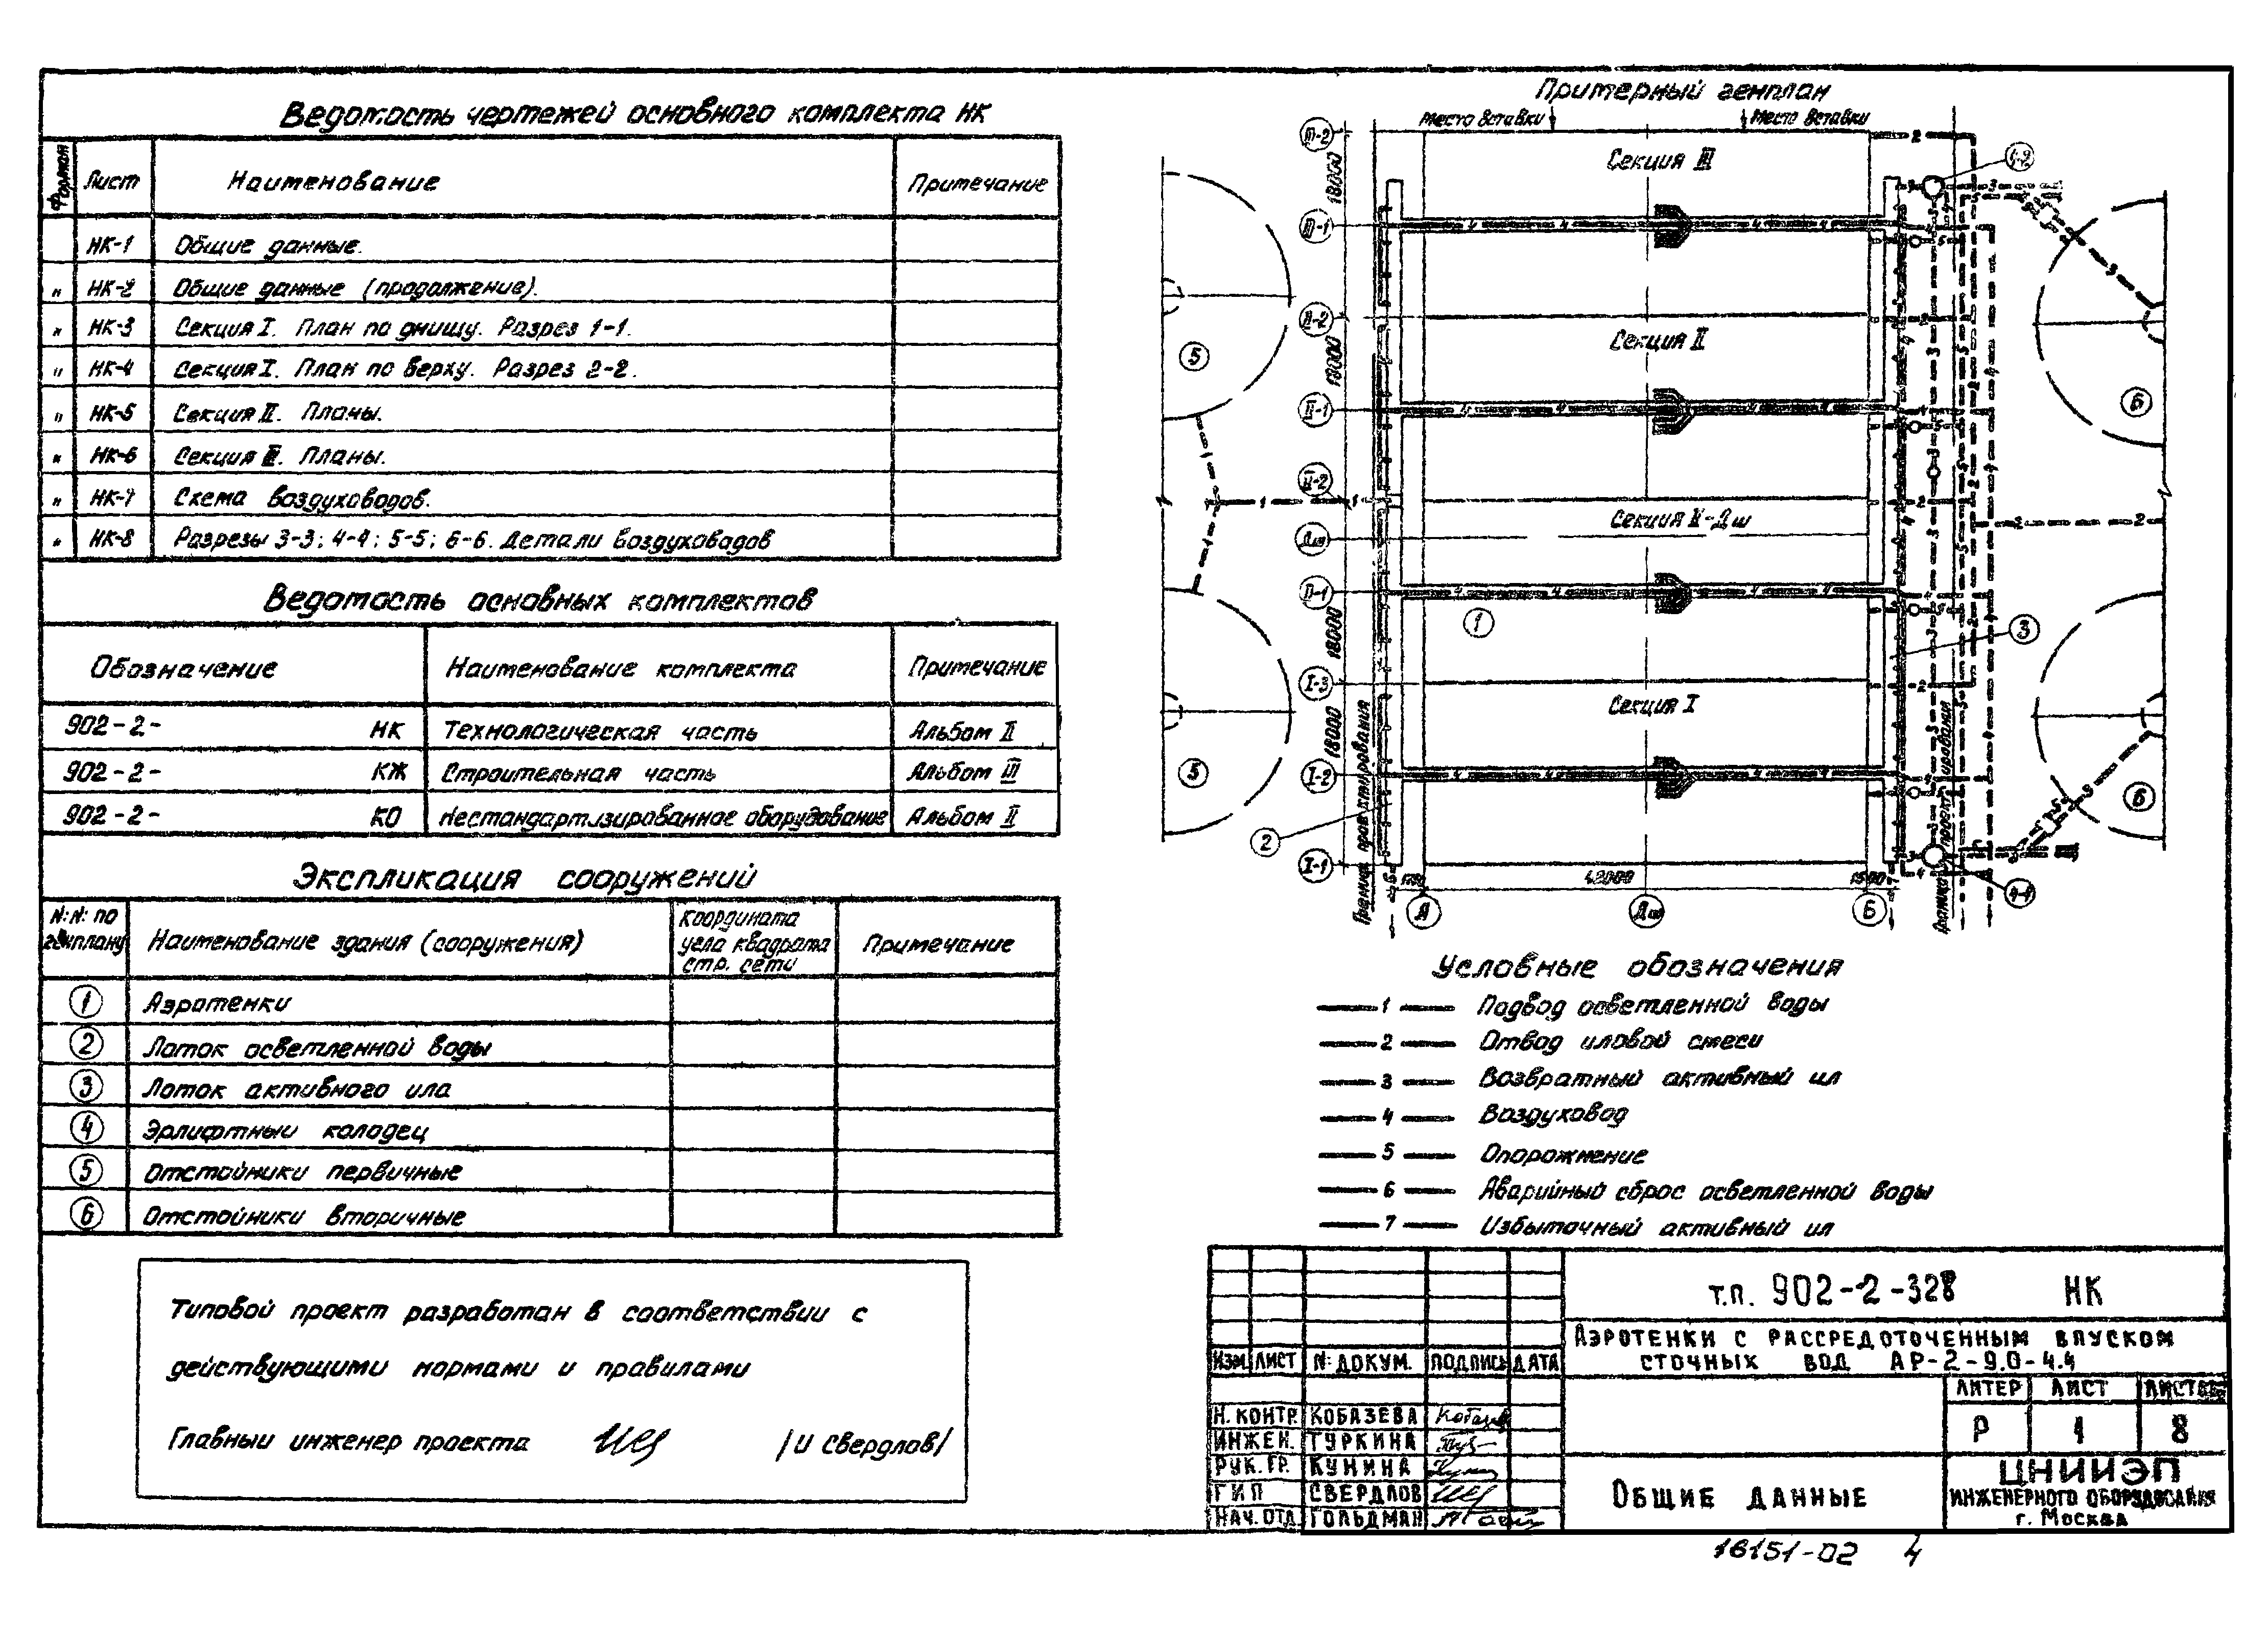 Ведомость чертежей основного комплекта НК
Формат Лист Наименование Примечание
НК-1 Общие данные.
" НК-2 Общие данные (продолжение).
" НК-3 Секция I. План по днищу. Разрез 1-1.
" НК-4 Секция I. План по верху. Разрез 2-2.
" НК-5 Секция II. Планы.
" НК-6 Секция III. Планы.
" НК-7 Схема воздуховодов.
" НК-8 Разрезы 3-3; 4-4; 5-5; 6-6. Детали воздуховодов
Ведомость основных комплектов
Обозначение Наименование комплекта Примечание
902-2- НК Технологическая часть Альбом II
902-2- КЖ Строительная часть Альбом III
902-2- КО Нестандартизированное оборудование Альбом II
Экспликация сооружений
N:N: по генплану Наименование здания (сооружения) Координата угла квадрата стр. сети Примечание
1 Аэротенки
2 Лоток осветленной воды
3 Лоток активного ила
4 Эрлифтный колодец
5 Отстойники первичные
6 Отстойники вторичные
Типовой проект разработан в соответствии с
действующими нормами и правилами
Главный инженер проекта /И Свердлов/
Примерный генплан
Место вставки Место вставки
III-2
Секция III
4-2
18000
III-1
Секция II
18000
5
II-1
6
II-2
Секция II-Дш
Дш
II-1
1
3
18000
I-3
Секция I
18000
I-2
5
6
2
I-1
42000 1500
4-1
А Дш Б
Граница проектирования
Граница проектирования
Условные обозначения
1 Подвод осветленной воды
2 Отвод иловой смеси
3 Возвратный активный ил
4 Воздуховод
5 Опорожнение
6 Аварийный сброс осветленной воды
7 Избыточный активный ил
т.п. 902-2-328 НК
Аэротенки с рассредоточенным впуском
сточных вод АР-2-9.0-4.4
Изм. Лист N: докум. Подпись Дата
Литер Лист Листов
Р 1 8
Н. контр. Кобазева
Инжен. Туркина
Рук. гр. Кунина
ГИП Свердлов
Нач. отд. Гольдман
Общие данные
ЦНИИЭП
инженерного оборудования
г. Москва
16151-02 4